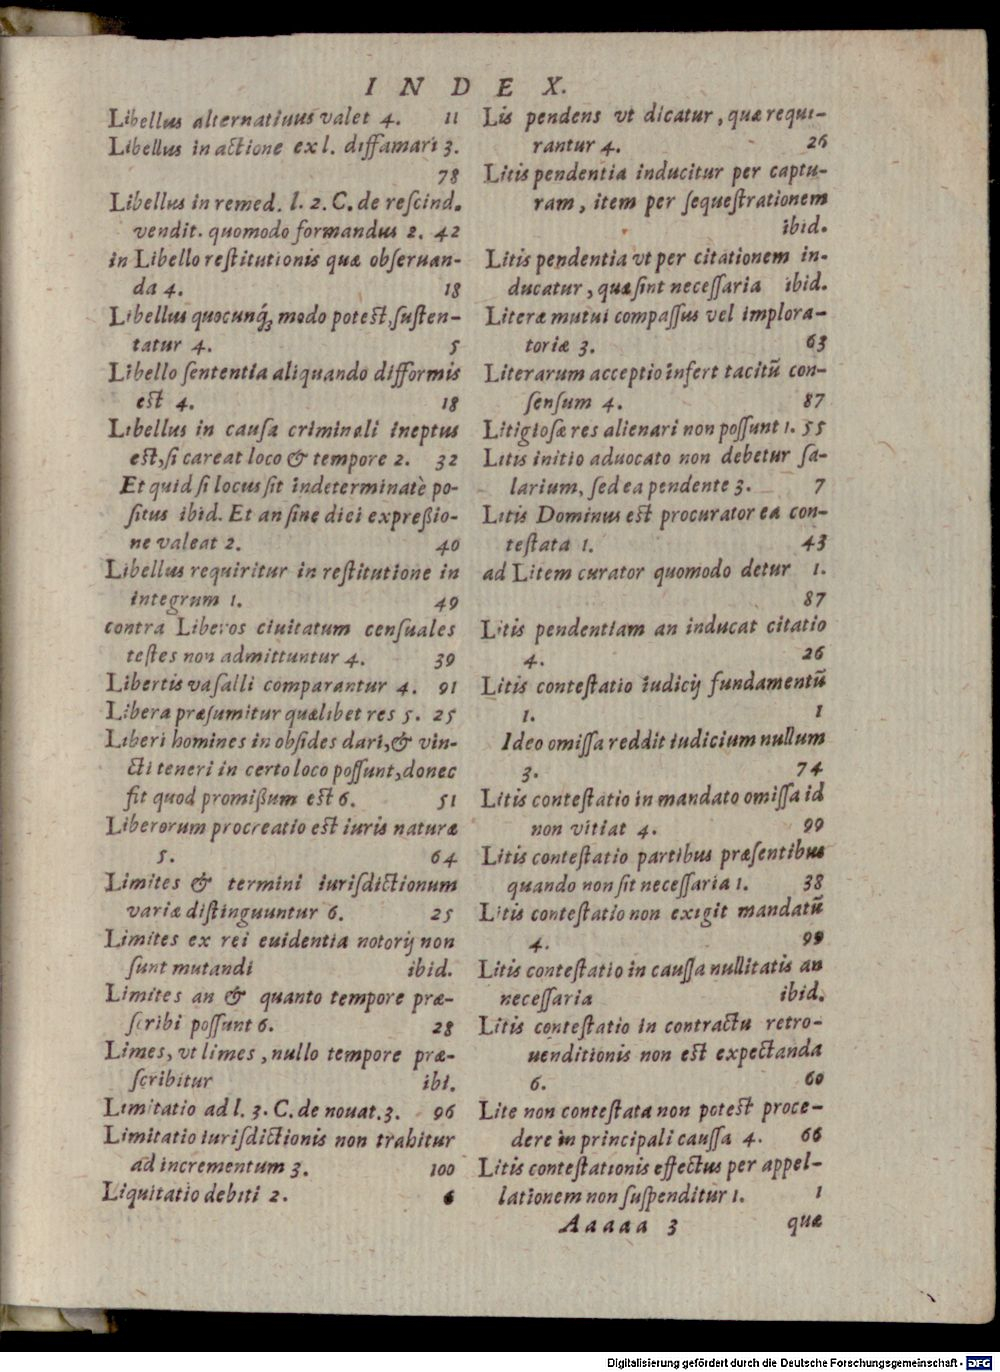 INDEX.
Libellus alternatiuus valet 4. 11
Libellus in actione ex l. diffamari 3.
78
Libellus in remed. l. 2. C. de rescind.
vendit. quomodo formandus 2. 42
in Libello restitutionis quæ obseruan-
da 4. 18
Libellus quocunq́; modo potest, susten-
tatur 4. 5
Libello sententia aliquando difformis
est 4. 18
Libellus in causa criminali ineptus
est, si careat loco & tempore 2. 32
Et quid si locus sit indeterminatè po-
situs ibid. Et an sine diei expreßio-
ne valeat 2. 40
Libellus requiritur in restitutione in
integrum 1. 49
contra Liberos ciuitatum censuales
testes non admittuntur 4. 39
Libertis vasalli comparantur 4. 91
Libera præsumitur quælibet res 5. 25
Liberi homines in obsides dari, & vin-
cti teneri in certo loco possunt, donec
fit quod promißum est 6. 51
Liberorum procreatio est iuris naturæ
5. 64
Limites & termini iurisdictionum
variæ distinguuntur 6. 25
Limites ex rei euidentia notorij non
sunt mutandi ibid.
Limites an & quanto tempore præ-
scribi possunt 6. 28
Limes, vt limes, nullo tempore præ-
scribitur ibi.
Limitatio ad l. 3. C. de nouat. 3. 96
Limitatio iurisdictionis non trahitur
ad incrementum 3. 100
Liquitatio debiti 2. 6
Lis pendens vt dicatur, quæ requi-
rantur 4. 26
Litis pendentia inducitur per captu-
ram, item per sequestrationem
ibid.
Litis pendentia vt per citationem in-
ducatur, quæ sint necessaria ibid.
Literæ mutui compassus vel implora-
toriæ 3. 63
Literarum acceptio infert tacitū con-
sensum 4. 87
Litigiosæ res alienari non possunt 1. 55
Litis initio aduocato non debetur sa-
larium, sed ea pendente 3. 7
Litis Dominus est procurator ea con-
testata 1. 43
ad Litem curator quomodo detur 1.
87
Litis pendentiam an inducat citatio
4. 26
Litis contestatio iudicij fundamentū
1. 1
Ideo omissa reddit iudicium nullum
3. 74
Litis contestatio in mandato omissa id
non vitiat 4. 99
Litis contestatio partibus præsentibus
quando non sit necessaria 1. 38
Litis contestatio non exigit mandatū
4. 99
Litis contestatio in caussa nullitatis an
necessaria ibid.
Litis contestatio in contractu retro-
uenditionis non est expectanda
6. 60
Lite non contestata non potest proce-
dere in principali caussa 4. 66
Litis contestationis effectus per appel-
lationem non suspenditur 1. 1
Aaaaa 3 quæ
Digitalisierung gefördert durch die Deutsche Forschungsgemeinschaft - DFG